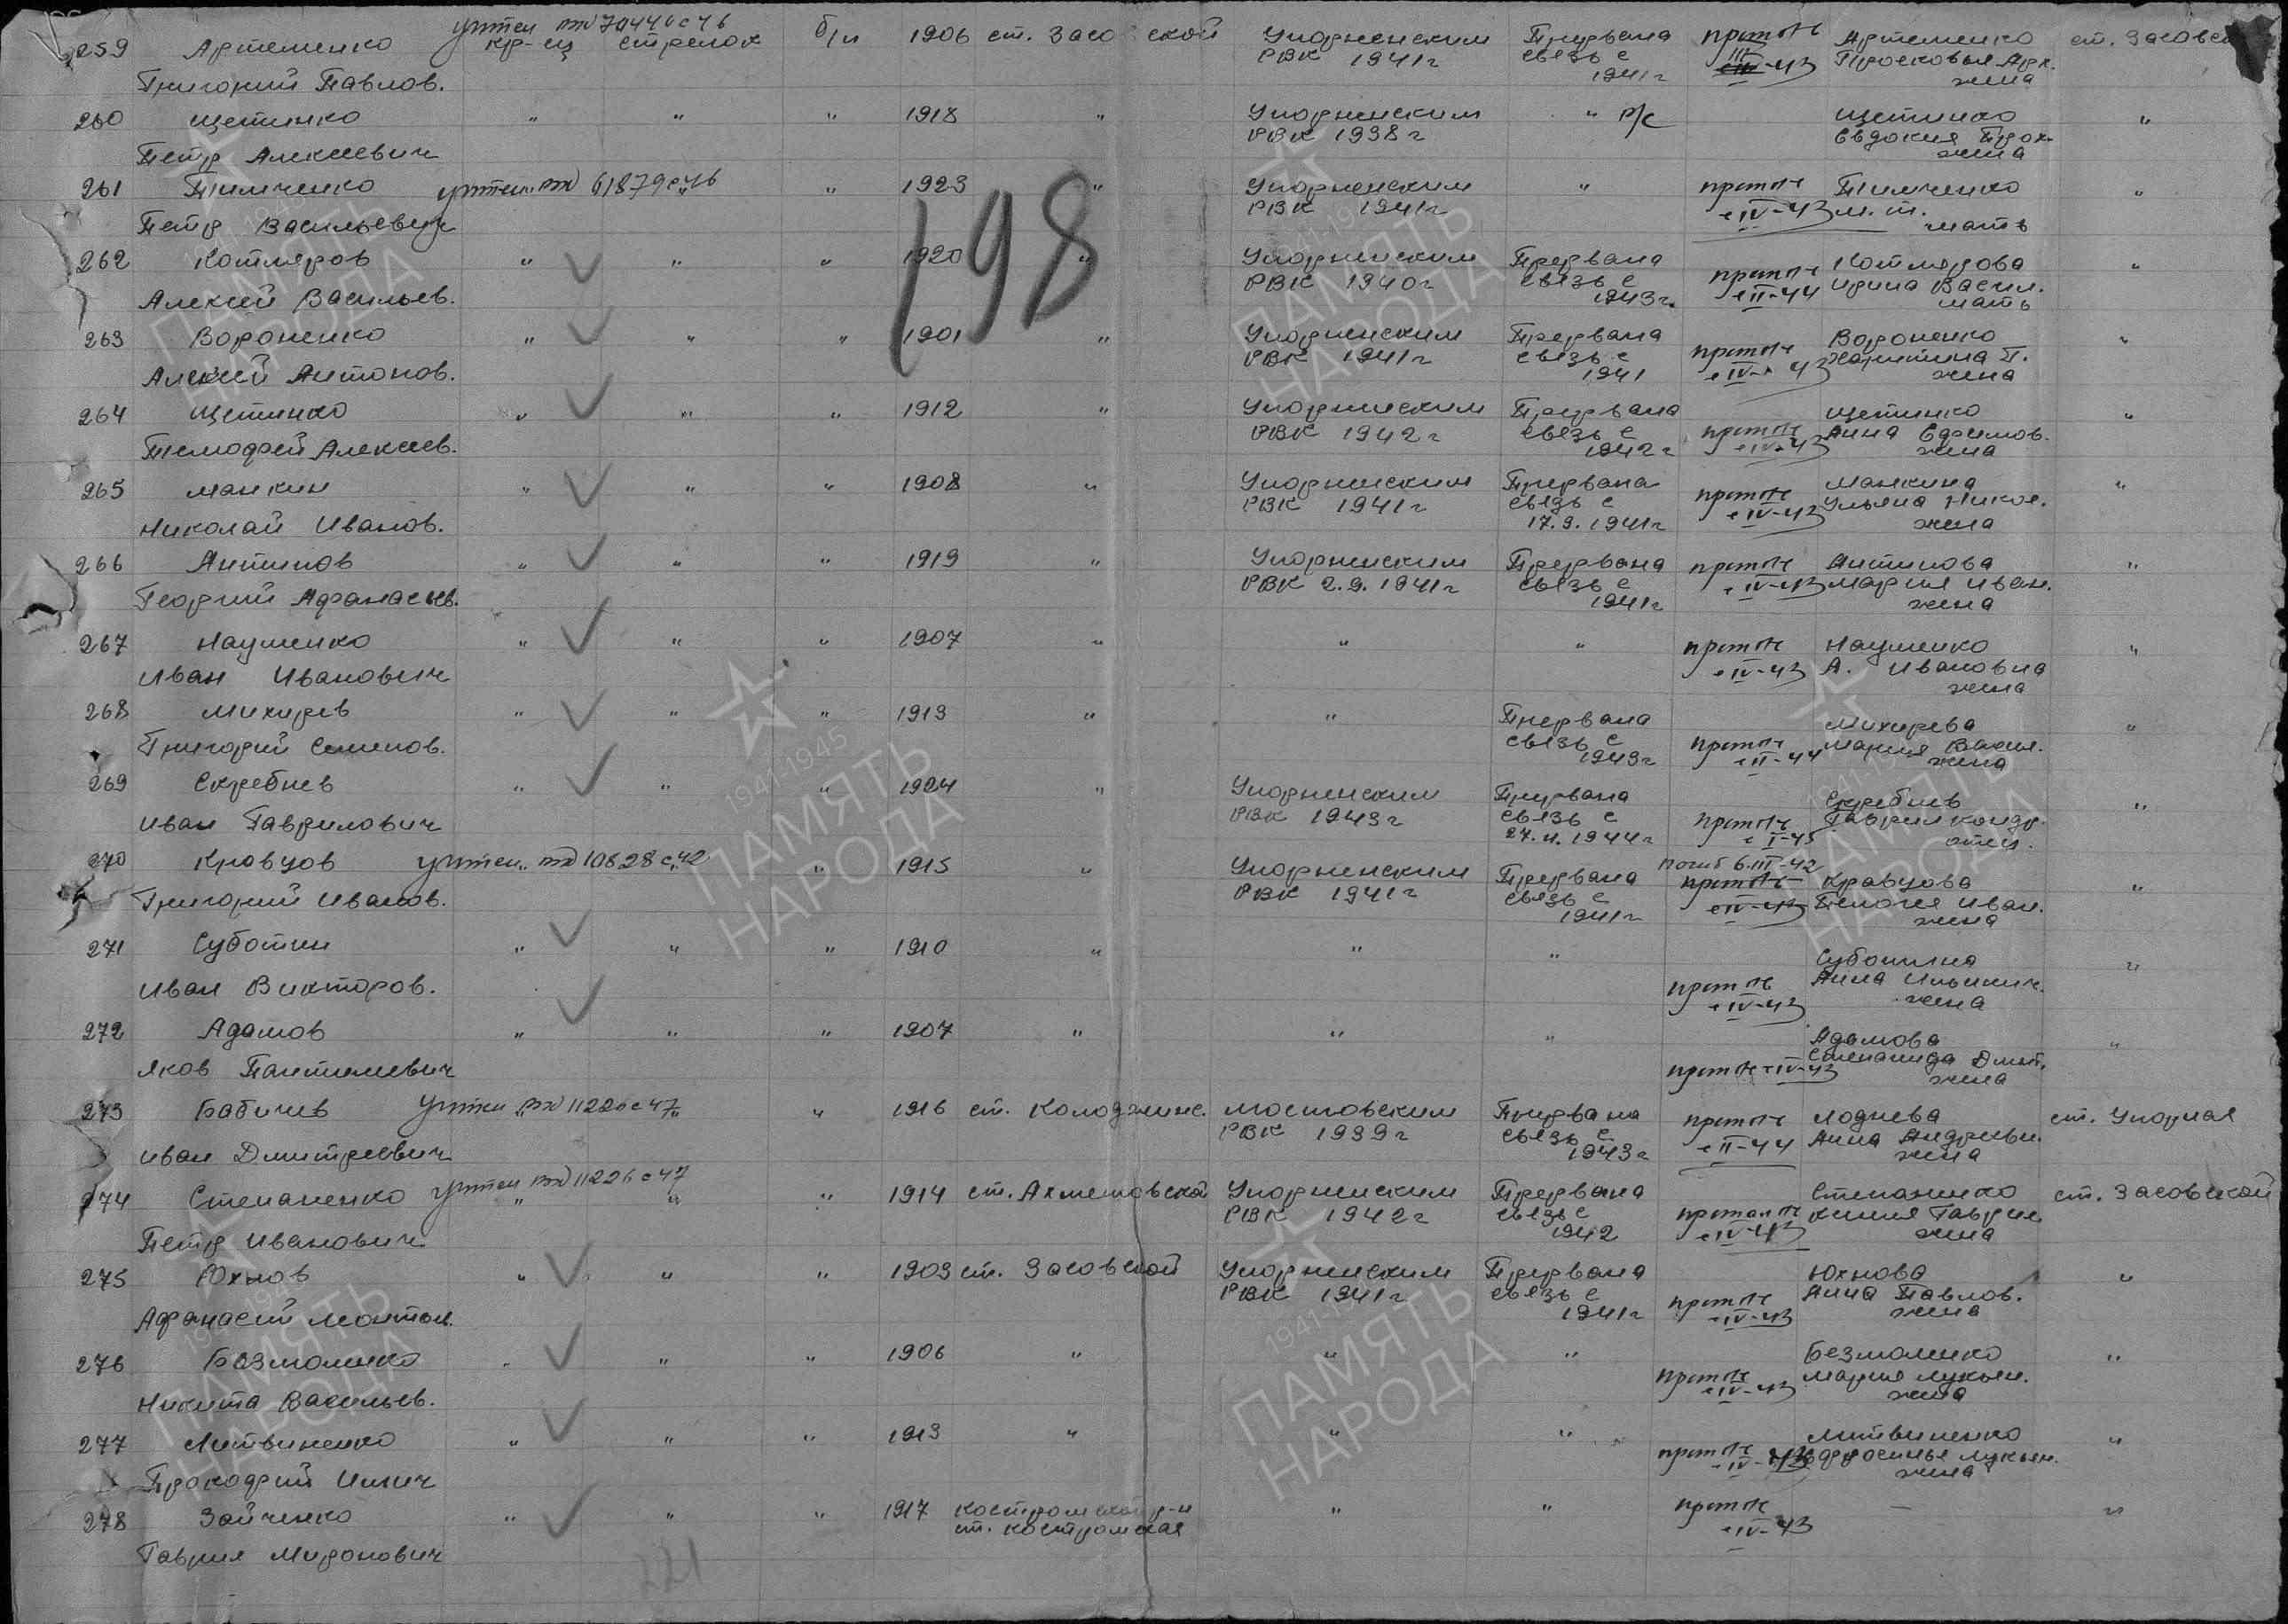 259 Артеменко кр-ец стрелок б/п 1906 ст. Засовской Упорненским Прервана проп б/в Артеменко ст. Засовск
учтен 1946
РВК 1941г связь с 1941г III-43 Просковья Арх. жена
Григорий Павлов.
260 Щетинко " " " 1918 " Упорненским " р/с Щетинко "
РВК 1938г Евдокия Прох. жена
Петр Алексеевич
261 Тимченко учтен 61879с46 " 1923 " Упорненским " Тимченко "
РВК 1941г с IV-43 М. т. мать
Петр Васильевич
198
262 Котляров " " " 1920 " Упорненским Прервана Котлярова "
РВК 1940г связь с 1943г. с II-44 Ирина Васил. мать
Алексей Васильев.
263 Вороненко " " " 1901 " Упорненским Прервана Вороненко "
РВК 1941г связь с 1941 с IV-43 Харитина П. жена
Алексей Антонов.
264 Щетинко " " " 1912 " Упорненским Прервана Щетинко "
РВК 1942г связь с 1942г с IV-43 Анна Ефимов. жена
Тимофей Алексеев.
265 Манкин " " " 1908 " Упорненским Прервана Манкина "
РВК 1941г связь с 17.9.1941г с IV-43 Ульяна Никол. жена
Николай Иванов.
266 Антипов " " " 1919 " Упорненским Прервана Антипова "
РВК 2.9.1941г связь с 1941г с IV-43 Мария Иван. жена
Георгий Афанасьев.
267 Науменко " " " 1907 " " " Науменко "
с IV-43 А. Ивановна жена
Иван Иванович
268 Михирев " " " 1913 " " Прервана Михирева "
связь с 1943г с II-44 Мария Васил. жена
Григорий Семенов.
269 Скребнев " " " 1924 " Упорненским Прервана Скребнев "
РВК 1943г связь с 27.4.1944г с I-45 Гаврил Кондр. отец.
Иван Гаврилович
270 Кравцов учтен 10628с42 " 1915 " Упорненским Прервана погиб 6.III-42 Кравцова "
РВК 1941г связь с 1941г с IV-43 Пелогея Иван. жена
Григорий Иванов.
271 Суботин " " " 1910 " " " Суботина "
с IV-43 Анна Ильинич. жена
Иван Викторов.
272 Адамов " " " 1907 " " " Адамова "
с IV-43 Степанида Дмит. жена
Яков Пантелиевич
273 Бабичев учтен 11226с47 " 1916 ст. Колоджинс. Мостовским Прервана Лоднева ст. Упорная
РВК 1939г связь с 1943г с II-44 Анна Андреевн. жена
Иван Дмитреевич
274 Степаненко учтен 11226с47 " " " 1914 ст. Ахметовской Упорненским Прервана Степаненко ст. Засовской
РВК 1942г связь с 1942 с IV-43 Ксиния Гаврил. жена
Петр Иванович
275 Юхнов " " " 1903 ст. Засовской Упорненским Прервана Юхнова "
РВК 1941г связь с 1941г с IV-43 Анна Павлов. жена
Афанасий
276 Безмоленко " " " 1906 " " " Безмоленко "
с IV-43 Мария Лукьян. жена
Никита Васильев.
277 Литвиненко " " " 1913 " " " Литвиненко "
с IV-43 Ефросинья Лукьян. жена
Прокофий Ильич
278 Зайченко " " " 1917 Костромской р-н " " — "
ст. Костромская с IV-43
Гаврил Миронович
221
1941-1945
ПАМЯТЬ
НАРОДА